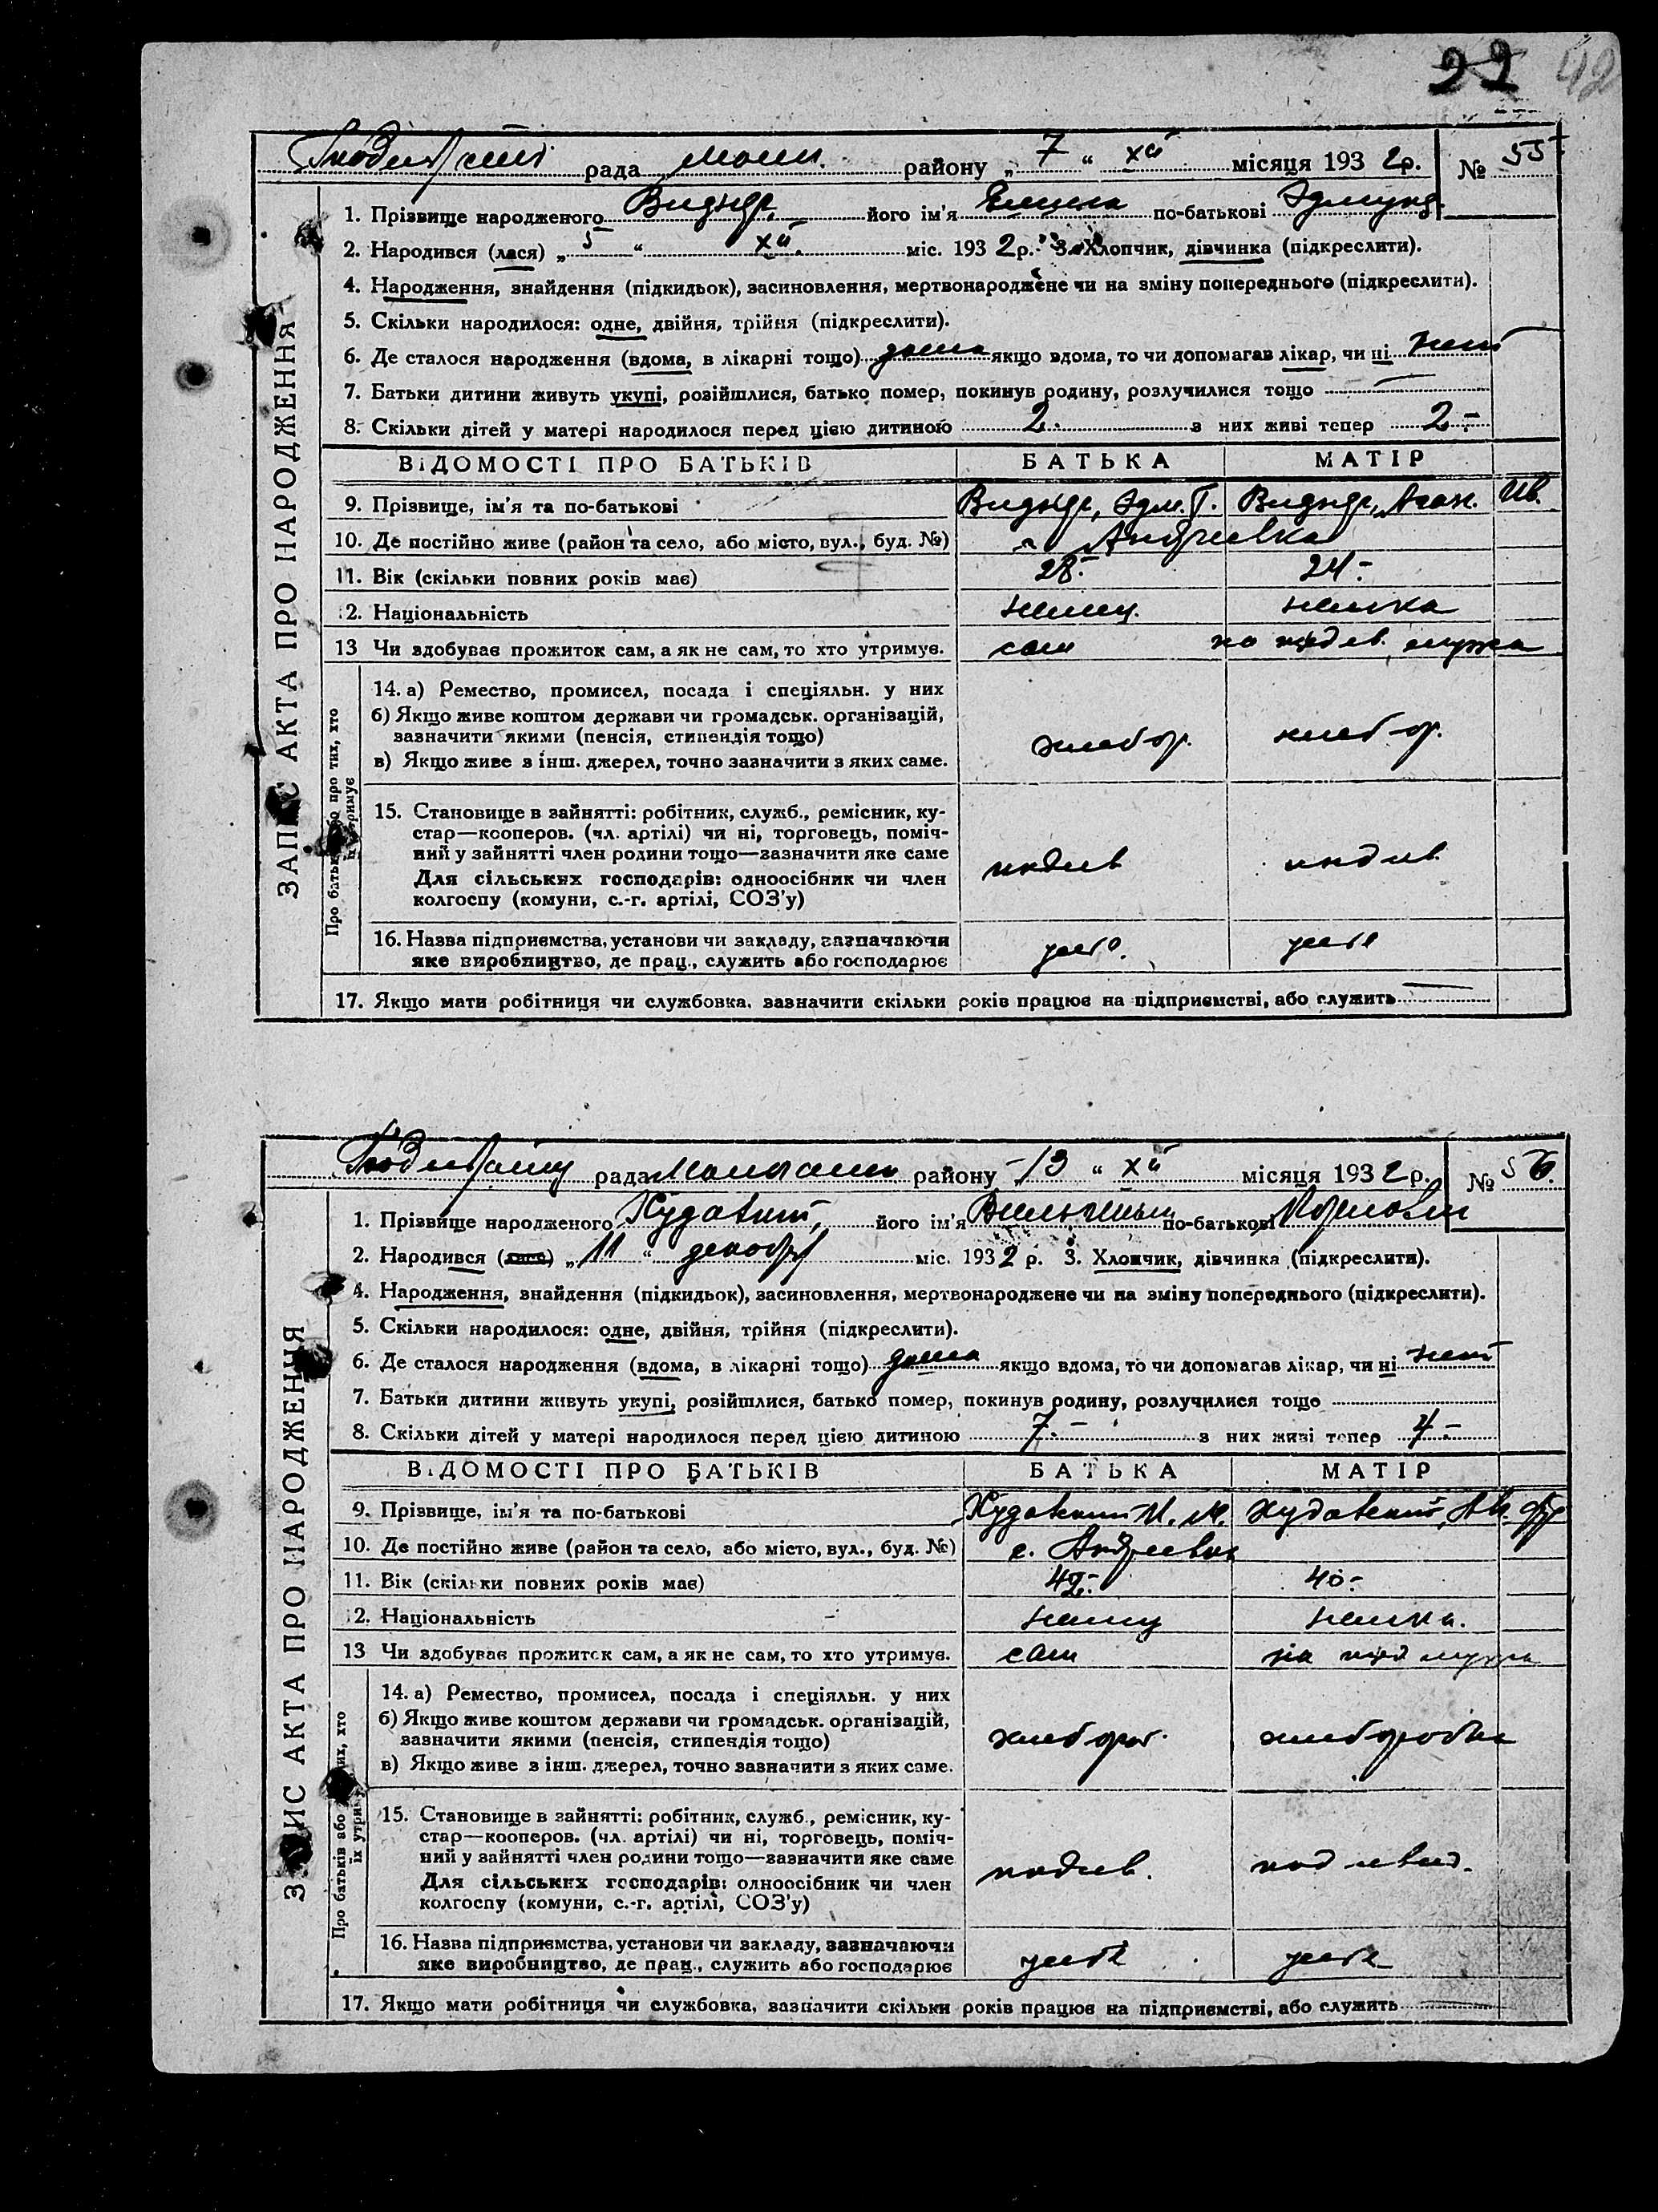 99 42
рада Молоч. району „ 7 “ XII місяця 193 2 р. № 55
ЗАПИС АКТА ПРО НАРОДЖЕННЯ
1. Прізвище народженого його ім'я по-батькові Эдмунд.
2. Народився (лася) „ 5 “ XII. міс. 193 2 р. 3. Хлопчик, дівчинка (підкреслити).
4. Народження, знайдення (підкидьок), засиновлення, мертвонароджене чи на зміну попереднього (підкреслити).
5. Скільки народилося: одне, двійня, трійня (підкреслити).
6. Де сталося народження (вдома, в лікарні тощо) дома якщо вдома, то чи допомагав лікар, чи ні нет
7. Батьки дитини живуть укупі, розійшлися, батько помер, покинув родину, розлучилися тощо —
8. Скільки дітей у матері народилося перед цією дитиною 2. з них живі тепер 2.-
ВІДОМОСТІ ПРО БАТЬКІВ БАТЬКА МАТІР
9. Прізвище, ім'я та по-батькові Эдм. Г. Ив.
10. Де постійно живе (район та село, або місто, вул., буд. №) Андреевка
11. Вік (скільки повних років має) 28.- 24.-
12. Національність немец. немка
13 Чи здобуває прожиток сам, а як не сам, то хто утримує. сам на иждев. мужа
Про батьків або про тих, хто їх утримує
14. а) Ремество, промисел, посада і спеціяльн. у них
б) Якщо живе коштом держави чи громадськ. організацій,
зазначити якими (пенсія, стипендія тощо) хлебор. хлебор.
в) Якщо живе з інш. джерел, точно зазначити з яких саме.
15. Становище в зайнятті: робітник, служб., ремісник, ку-
стар—кооперов. (чл. артілі) чи ні, торговець, поміч-
ний у зайнятті член родини тощо—зазначити яке саме
Для сільських господарів: одноосібник чи член
колгоспу (комуни, с.-г. артілі, СОЗ'у)
16. Назва підприємства, установи чи закладу, зазначаючи
яке виробництво, де прац., служить або господарює
17. Якщо мати робітниця чи службовка, зазначити скільки років працює на підприємстві, або служить —
рада району 13 “ XII місяця 193 2 р. № 56.
ЗАПИС АКТА ПРО НАРОДЖЕННЯ
1. Прізвище народженого його ім'я по-батькові
2. Народився (лася) „ 11 “ декабря міс. 193 2 р. 3. Хлопчик, дівчинка (підкреслити).
4. Народження, знайдення (підкидьок), засиновлення, мертвонароджене чи на зміну попереднього (підкреслити).
5. Скільки народилося: одне, двійня, трійня (підкреслити).
6. Де сталося народження (вдома, в лікарні тощо) дома якщо вдома, то чи допомагав лікар, чи ні нет
7. Батьки дитини живуть укупі, розійшлися, батько помер, покинув родину, розлучилися тощо
8. Скільки дітей у матері народилося перед цією дитиною 7.- з них живі тепер 4.-
ВІДОМОСТІ ПРО БАТЬКІВ БАТЬКА МАТІР
9. Прізвище, ім'я та по-батькові
10. Де постійно живе (район та село, або місто, вул., буд. №) с. Андреевка
11. Вік (скільки повних років має) 42.- 40.-
12. Національність немец немка.
13 Чи здобуває прожиток сам, а як не сам, то хто утримує. сам на ижд мужа
Про батьків або про тих, хто їх утримує
14. а) Ремество, промисел, посада і спеціяльн. у них
б) Якщо живе коштом держави чи громадськ. організацій,
зазначити якими (пенсія, стипендія тощо) хлебороб. хлеборобка
в) Якщо живе з інш. джерел, точно зазначити з яких саме.
15. Становище в зайнятті: робітник, служб., ремісник, ку-
стар—кооперов. (чл. артілі) чи ні, торговець, поміч-
ний у зайнятті член родини тощо—зазначити яке саме
Для сільських господарів: одноосібник чи член
колгоспу (комуни, с.-г. артілі, СОЗ'у)
16. Назва підприємства, установи чи закладу, зазначаючи
яке виробництво, де прац., служить або господарює
17. Якщо мати робітниця чи службовка, зазначити скільки років працює на підприємстві, або служить